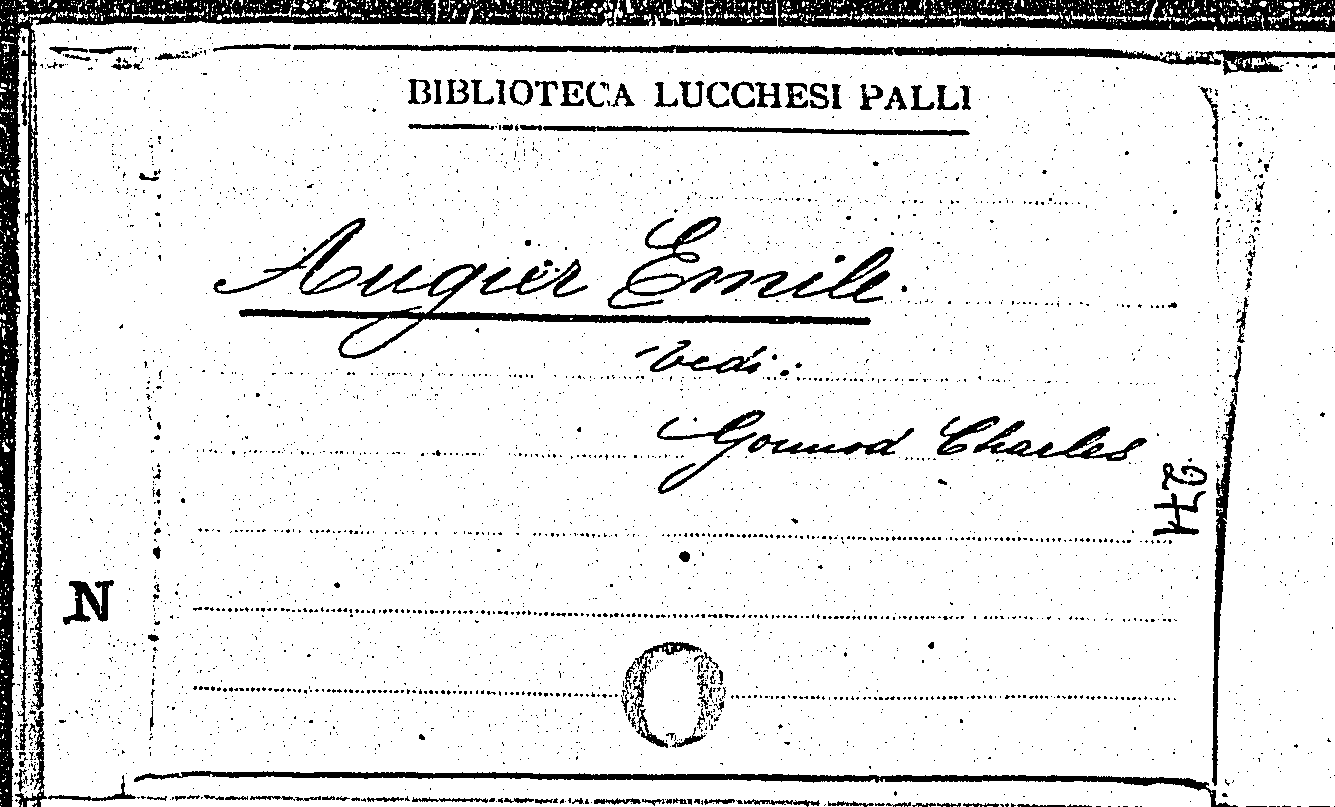 BIBLIOTECA LUCCHESI PALLI
Augier Emile.
Vedi:
Gounod Charles
274
N